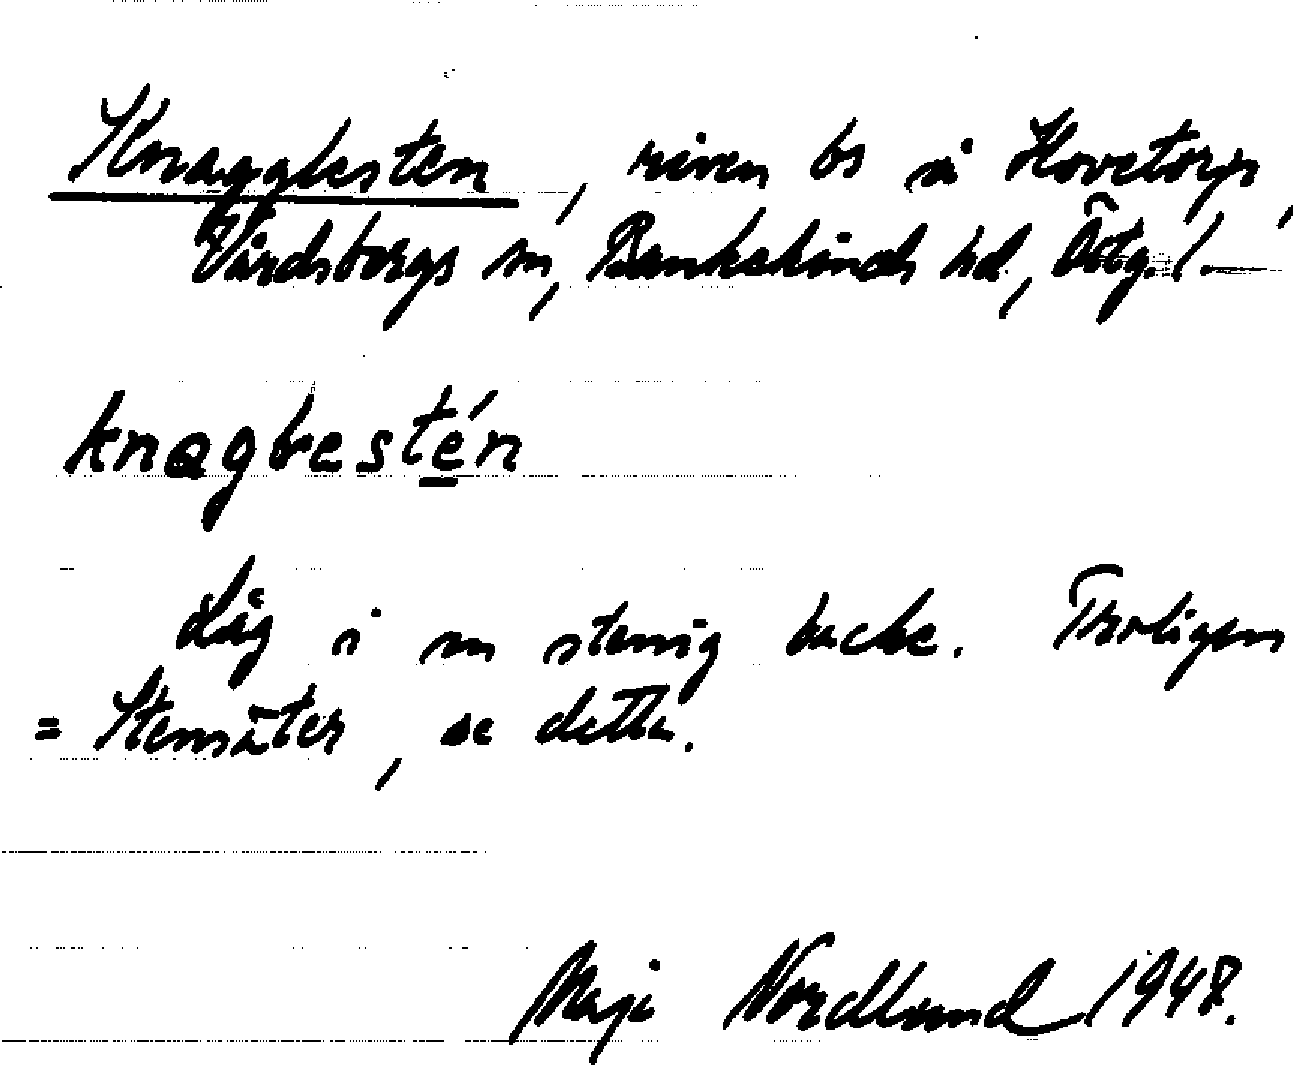 Knagglesten, riven bs å Hovetorp,
Vårdsbergs sn, Bankekinds hd, Östg. l.
knaglestén
Låg i en stenig backe. Troligen
= Stensäter, se detta.
Maji Nordlund 1948.